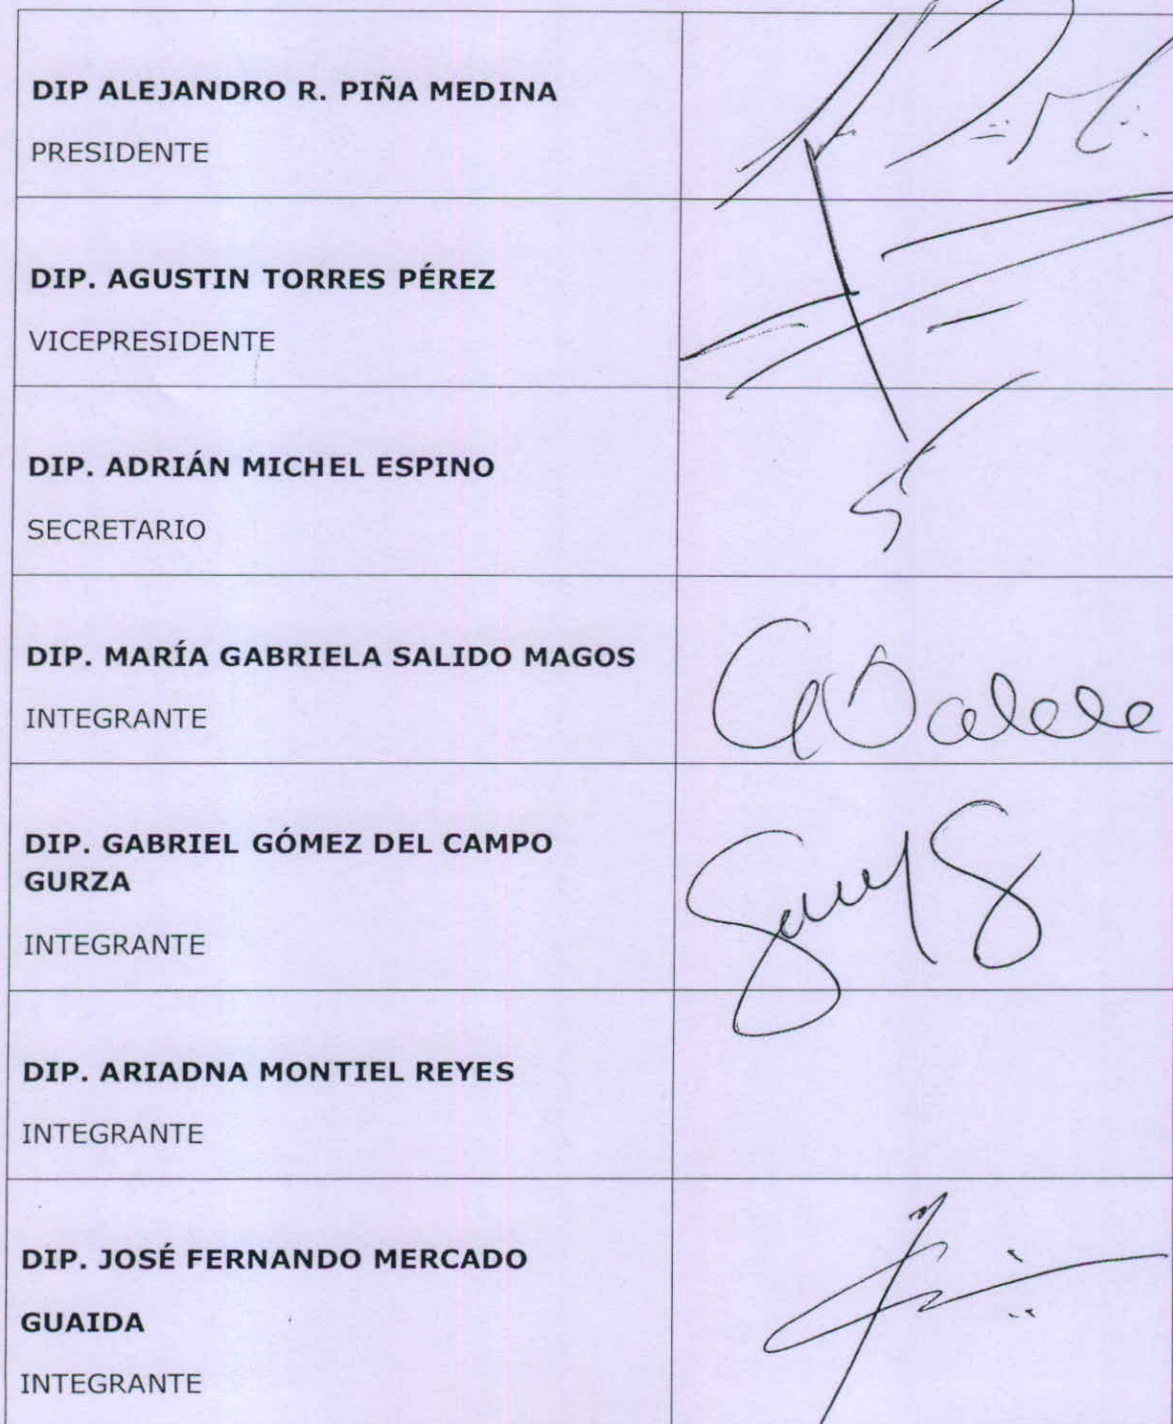 DIP ALEJANDRO R. PIÑA MEDINA
PRESIDENTE
DIP. AGUSTIN TORRES PÉREZ
VICEPRESIDENTE
DIP. ADRIÁN MICHEL ESPINO
SECRETARIO
DIP. MARÍA GABRIELA SALIDO MAGOS
INTEGRANTE
DIP. GABRIEL GÓMEZ DEL CAMPO
GURZA
INTEGRANTE
DIP. ARIADNA MONTIEL REYES
INTEGRANTE
DIP. JOSÉ FERNANDO MERCADO
GUAIDA
INTEGRANTE